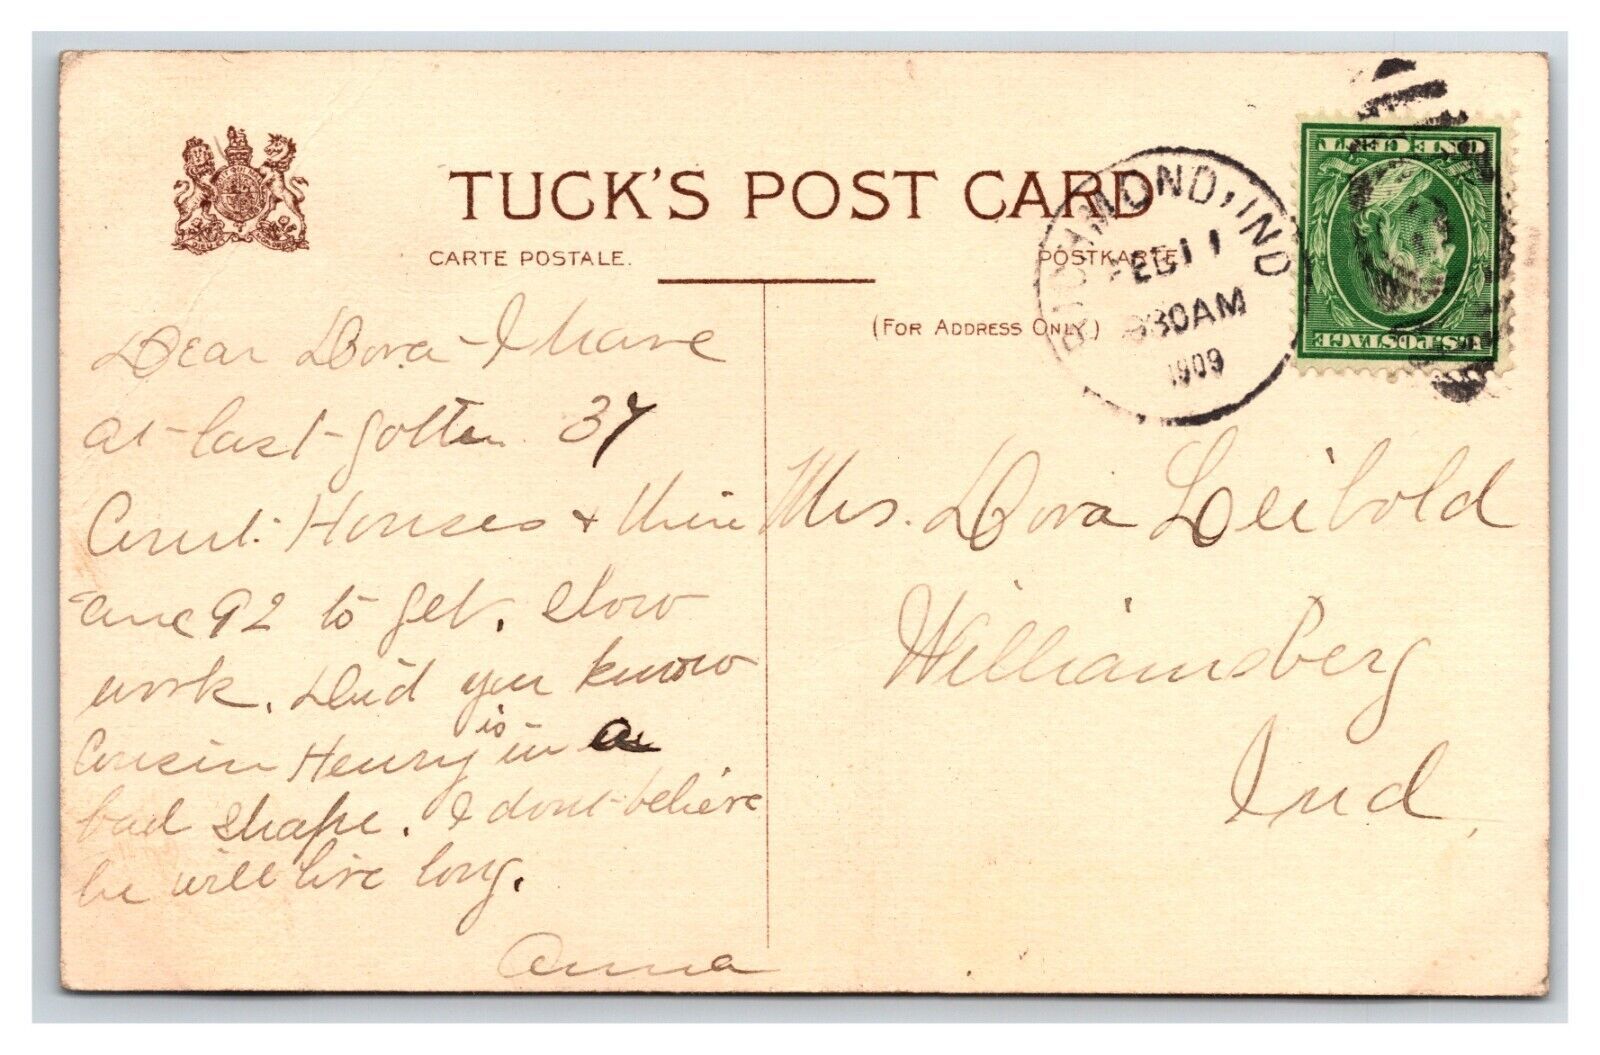 TUCK'S POST CARD
CARTE POSTALE.
POSTKARTE
(FOR ADDRESS ONLY)
RICHMOND, IND
FEB 11
30AM
1909
ONE CENT
U.S. POSTAGE
Dear Dora - I have
at-last-gotten 37
Houses +
are 92 to get. Slow
work. Did you know
Cousin Henry is in a
bad shape. I dont-believe
he will live long.
Anna
Mrs. Dora Leibold
Williamsberg
Ind.